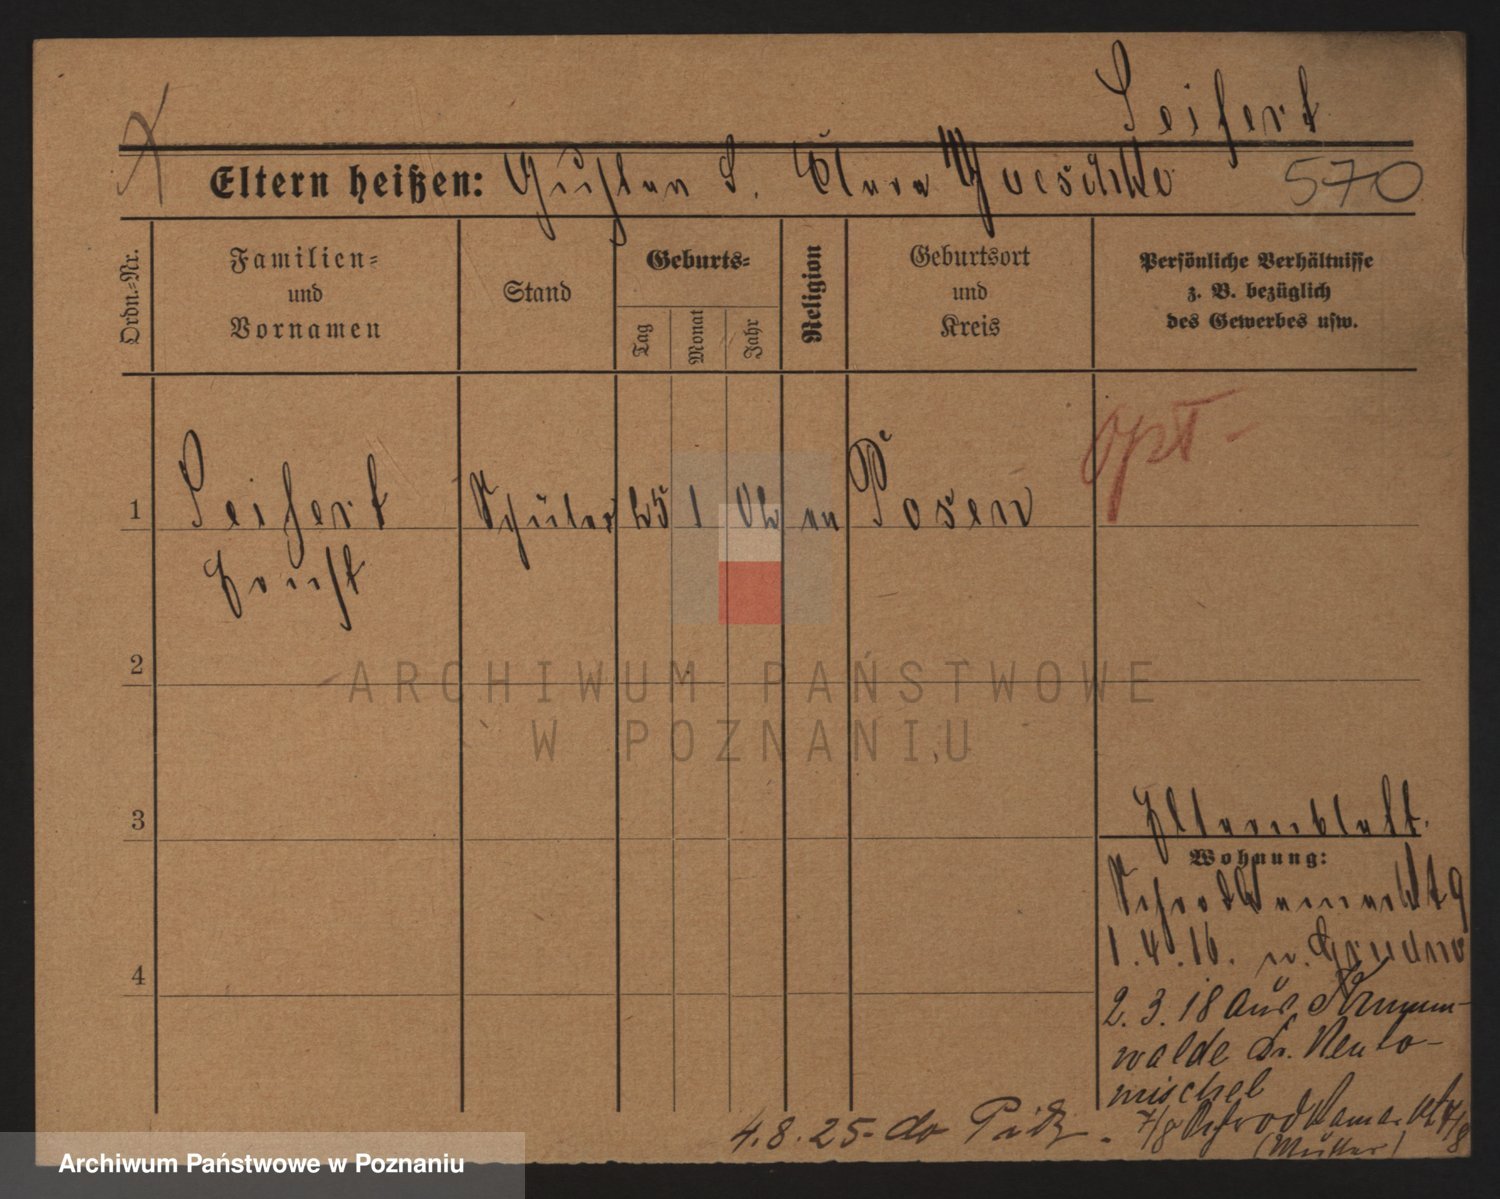 Seifert
Eltern heißen: Gustav S. Clara Woeschke
570
Ordn.-Nr.
Familien-
und
Vornamen
Stand
Geburts-
Tag
Monat
Jahr
Religion
Geburtsort
und
Kreis
Persönliche Verhältnisse
z. B. bezüglich
des Gewerbes usw.
opt-
1 Seifert Schüler 25 1 02 ev Posen
Ernst
2
ARCHIWUM PAŃSTWOWE
W POZNANIU
3
Elternblatt.
Wohnung:
Schrodkamarkt 9
1.4.16. n.
4
2.3.18 aus
walde Kr. Neuto-
mischel
7/8 Schrodkamarkt 7/8
(Mutter)
4.8.25 do
Archiwum Państwowe w Poznaniu